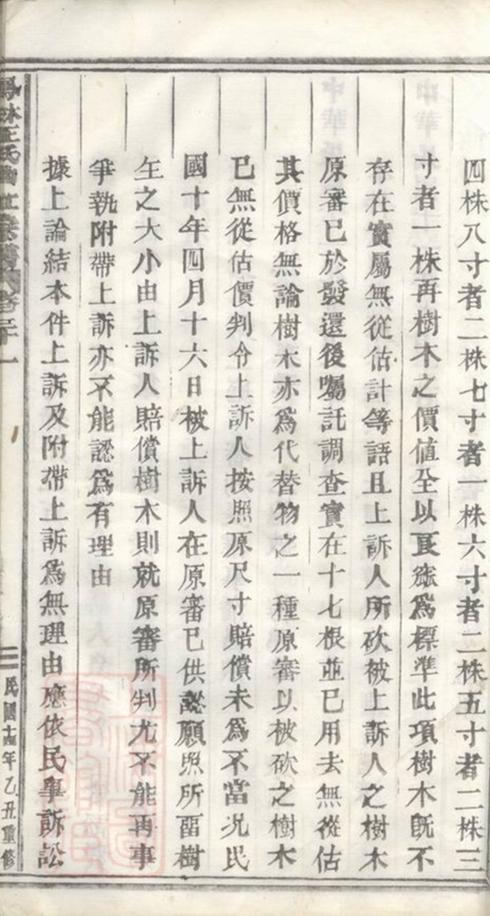 四株八寸者二株七寸者一株六寸者二株五寸者二株三
寸者一株再樹木之價值全以長綠爲標準此項樹木旣不
存在實屬無從估計等語且上訴人所砍被上訴人之樹木
原審已於發還後囑託調查實在十七根並已用去無從估
其價格無論樹木亦爲代替物之一種原審以被砍之樹木
已無從估價判令上訴人按照原尺寸賠償未爲不當況民
國十年四月十六日被上訴人在原審已供認願照所留樹
之大小由上訴人賠償樹木則就原審所判尤不能再事
爭執附帶上訴亦不能認爲有理由
據上論結本件上訴及附帶上訴爲無理由應依民事訴訟
林王氏
民國十四年乙丑重修